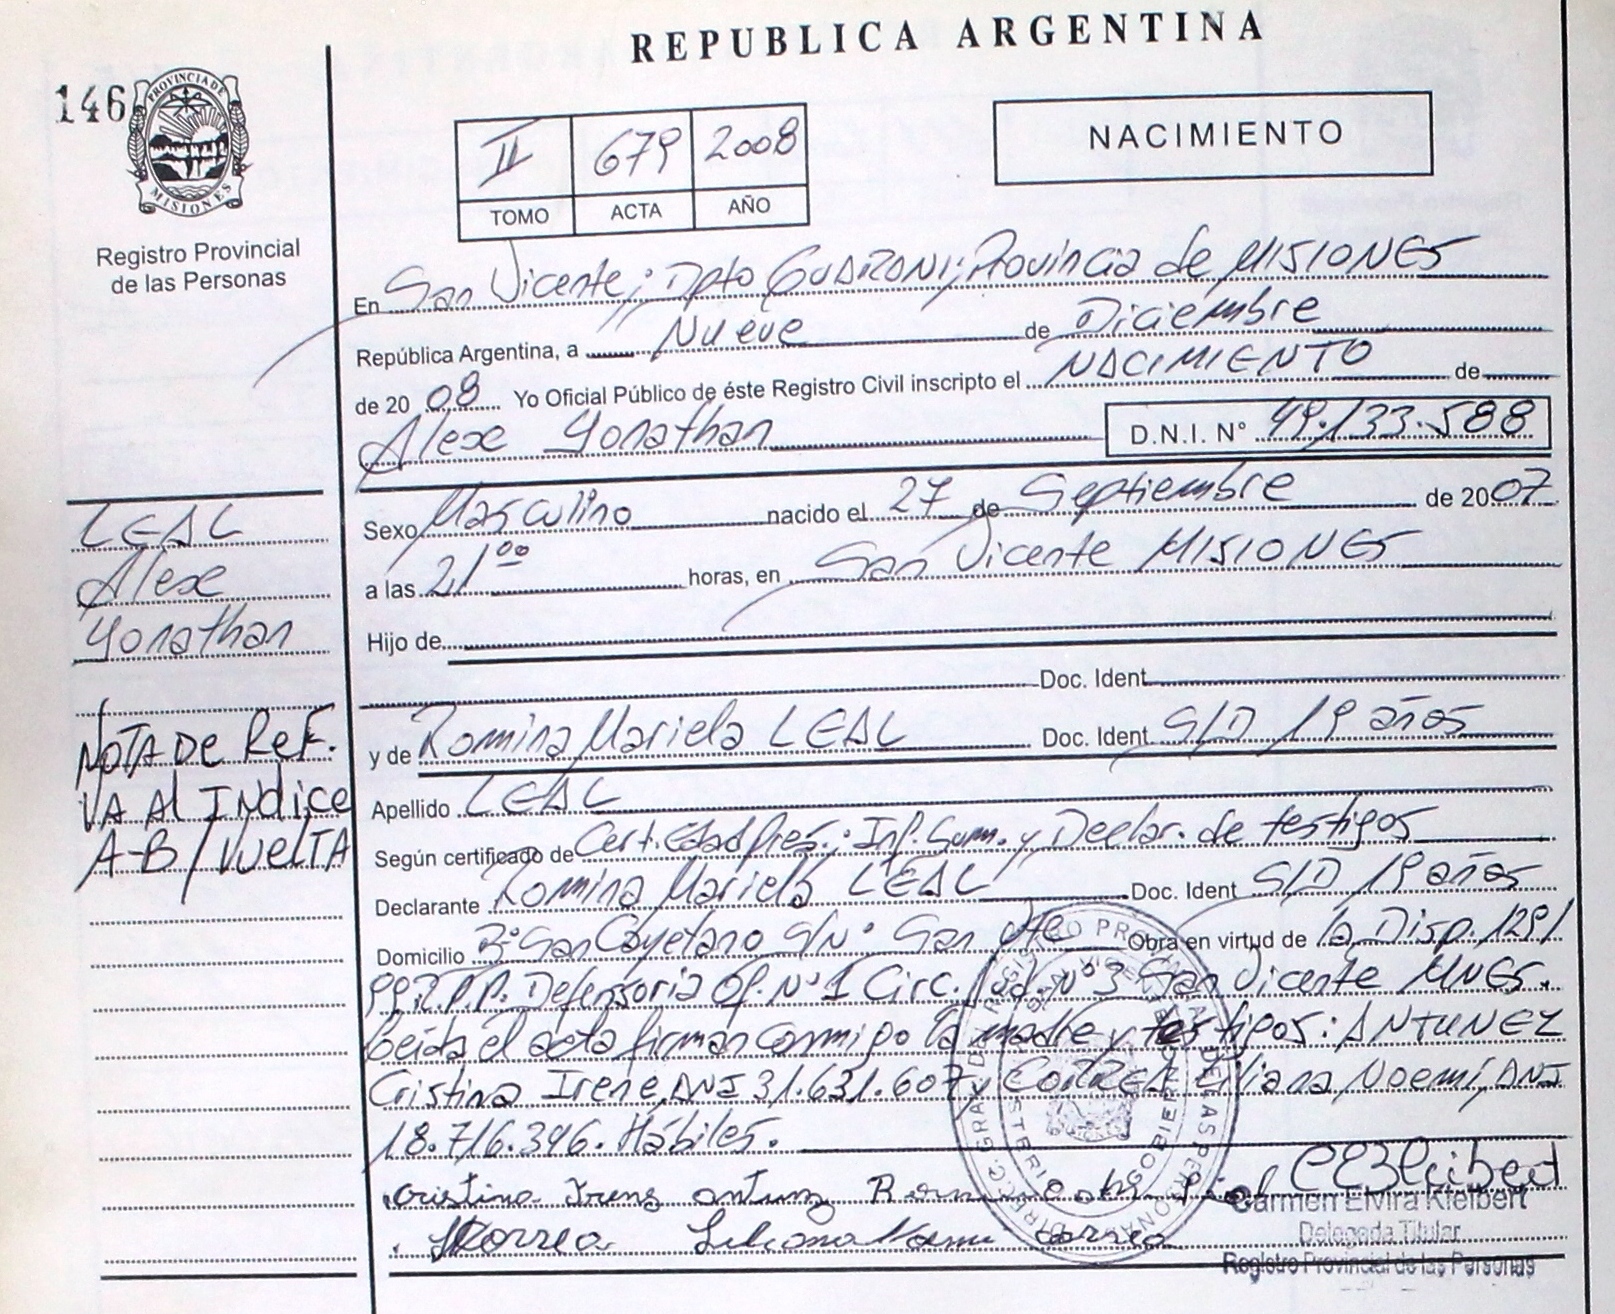 REPUBLICA ARGENTINA
146
PROVINCIA DE
MISIONES
Registro Provincial
de las Personas
II 679 2008
TOMO ACTA AÑO
NACIMIENTO
En San Vicente; Dpto GUARANI; Provincia de MISIONES
República Argentina, a Nueve de Diciembre
de 2008 Yo Oficial Público de éste Registro Civil inscripto el NACIMIENTO de
Alexe Yonathan D.N.I. N° 49.133.588
Sexo Masculino nacido el 27 de Septiembre de 2007
a las 21°° horas, en San Vicente MISIONES
Hijo de
Doc. Ident
y de Romina Mariela LEAL Doc. Ident S/D 19 años
Apellido LEAL
Según certificado de Cert. Edad Pres.; Inf. Sum. y Declar. de testigos
Declarante Romina Mariela LEAL Doc. Ident S/D 19 años
Domicilio B° San Cayetano S/N° San Vte Obra en virtud de la Disp. 129/
99.R.P.P. Defensoria Of. N°1 Circ. Jud. N°3 San Vicente MNES.
Leida el acta firman conmigo la madre y testigos: ANTUNEZ
Cristina Irene, DNI 31.631.607 y CORREA Liliana Noemi, DNI
18.716.346. Hábiles.
Carmen Elvira Kleibert
Delegada Titular
Registro Provincial de las Personas
LEAL
Alexe
Yonathan
NOTA DE REF.
VA Al INdice
A-B/VUELTA